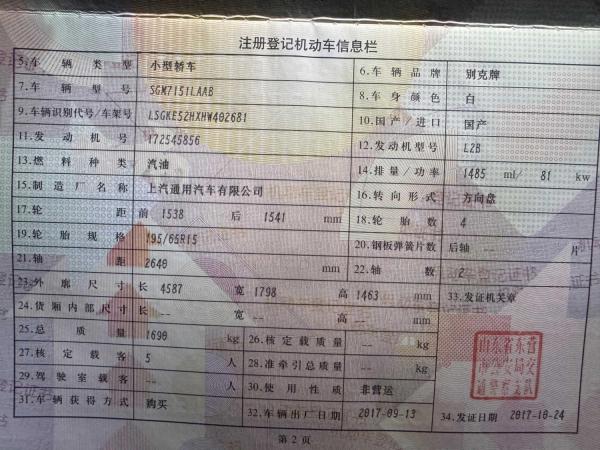 注册登记机动车信息栏
5.车辆类型 小型轿车 6.车辆品牌 别克牌
7.车辆型号 SGM7151LAAB 8.车身颜色 白
9.车辆识别代号/车架号 LSGKE52HXHW402681 10.国产/进口 国产
11.发动机号 172545856 12.发动机型号 L2B
13.燃料种类 汽油 14.排量/功率 1485 ml/ 81 kw
15.制造厂名称 上汽通用汽车有限公司 16.转向形式 方向盘
17.轮距 前 1538 后 1541 mm 18.轮胎数 4
19.轮胎规格 195/65R15 20.钢板弹簧片数 后轴 -- 片
21.轴距 2640 mm 22.轴数 2
23.外廓尺寸 长 4587 宽 1798 高 1463 mm 33.发证机关章
24.货厢内部尺寸 长 -- 宽 -- 高 -- mm
25.总质量 1690 kg 26.核定载质量 -- kg
27.核定载客 5 人 28.准牵引总质量 -- kg
29.驾驶室载客 -- 人 30.使用性质 非营运
山东省东营
市公安局交
通警察支队
31.车辆获得方式 购买 32.车辆出厂日期 2017-09-13 34.发证日期 2017-10-24
第2页